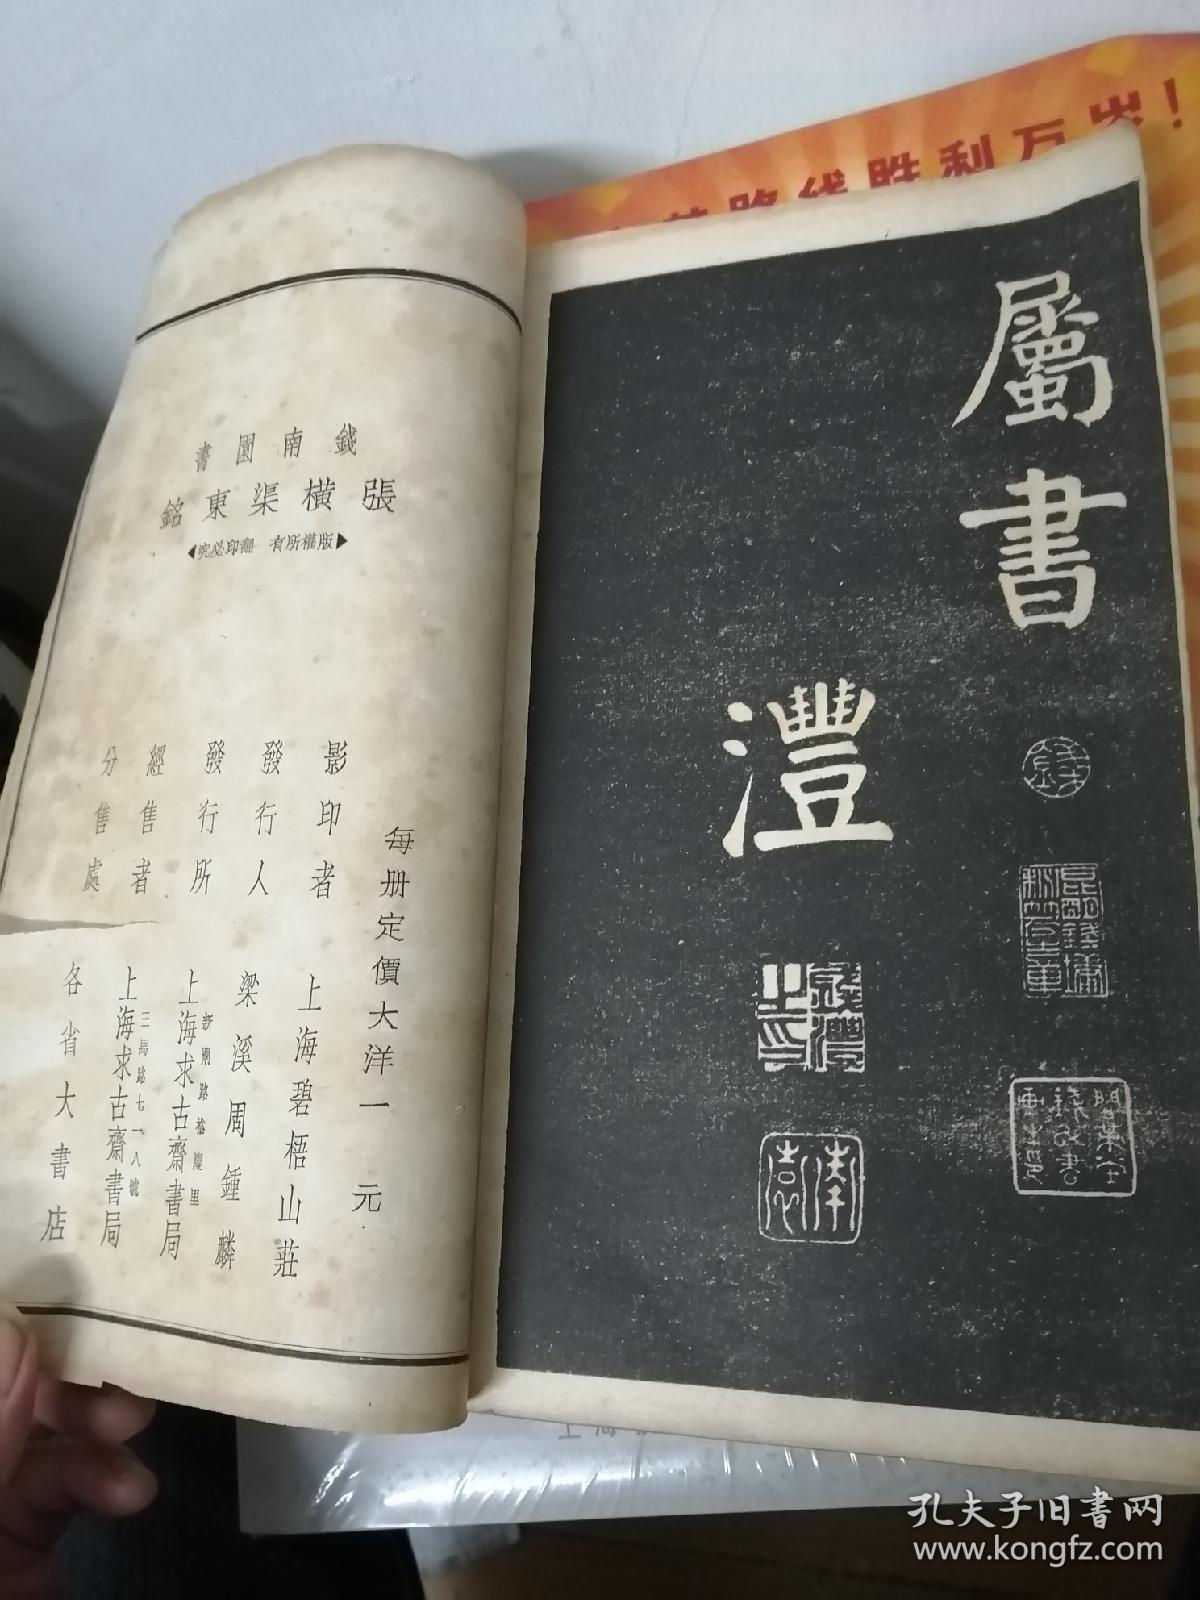 路线胜利万岁！
屬書
灃
錢灃之印
南園
錢南園書
張橫渠東銘
版權所有 翻印必究
每册定價大洋一元
影印者 上海碧梧山莊
發行人 梁溪周鍾麟
發行所 新閘路福慶里 上海求古齋書局
經售者 三馬路七一八號 上海求古齋書局
分售處 各省大書店
上海
孔夫子旧书网
www.kongfz.com